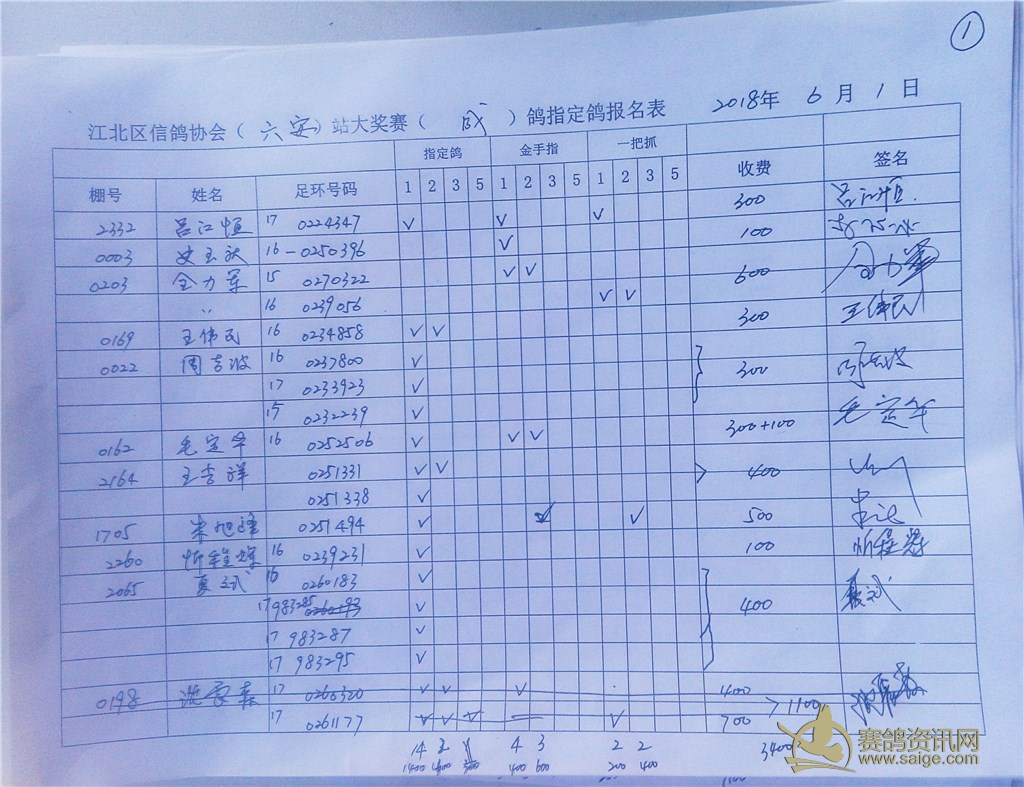 1
江北区信鸽协会（六安）站大奖赛（成）鸽指定鸽报名表 2018年 6月 1日
指定鸽 金手指 一把抓 收费 签名
棚号 姓名 足环号码 1 2 3 5 1 2 3 5 1 2 3 5
2332 吕江恒 17 0224347 √ √ √ 300 吕江恒
0003 16-0250396 √ 100
0203 全力军 15 0270322 √ √ 600
〃 16 0239056 √ √
0169 王伟民 16 0234858 √ √ 300 王伟民
0022 周吉波 16 0237800 √ 300
17 0233923 √
15 0232239 √
0162 毛定年 16 0252506 √ √ √ 300+100 毛定年
2164 王吉祥 0251331 √ √ 400
0251338 √
1705 0251494 √ √ √ 500
2260 16 0239231 √ 100
2065 夏式 16 0260183 √ 400 夏式
17 983285 √
17 983287 √
17 983295 √
0198 17 0260320 √ √ √ 400 >1100
17 0261177 √ √ √ √ 700
14 4 3 2 2 3400
1400 400 600 200 400
赛鸽资讯网
www.saige.com